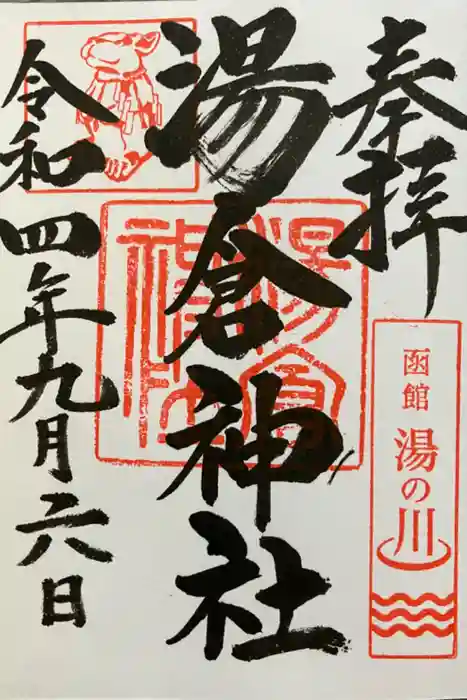 奉拝
函館
湯の川
湯倉神社
湯倉神社
令和四年九月六日